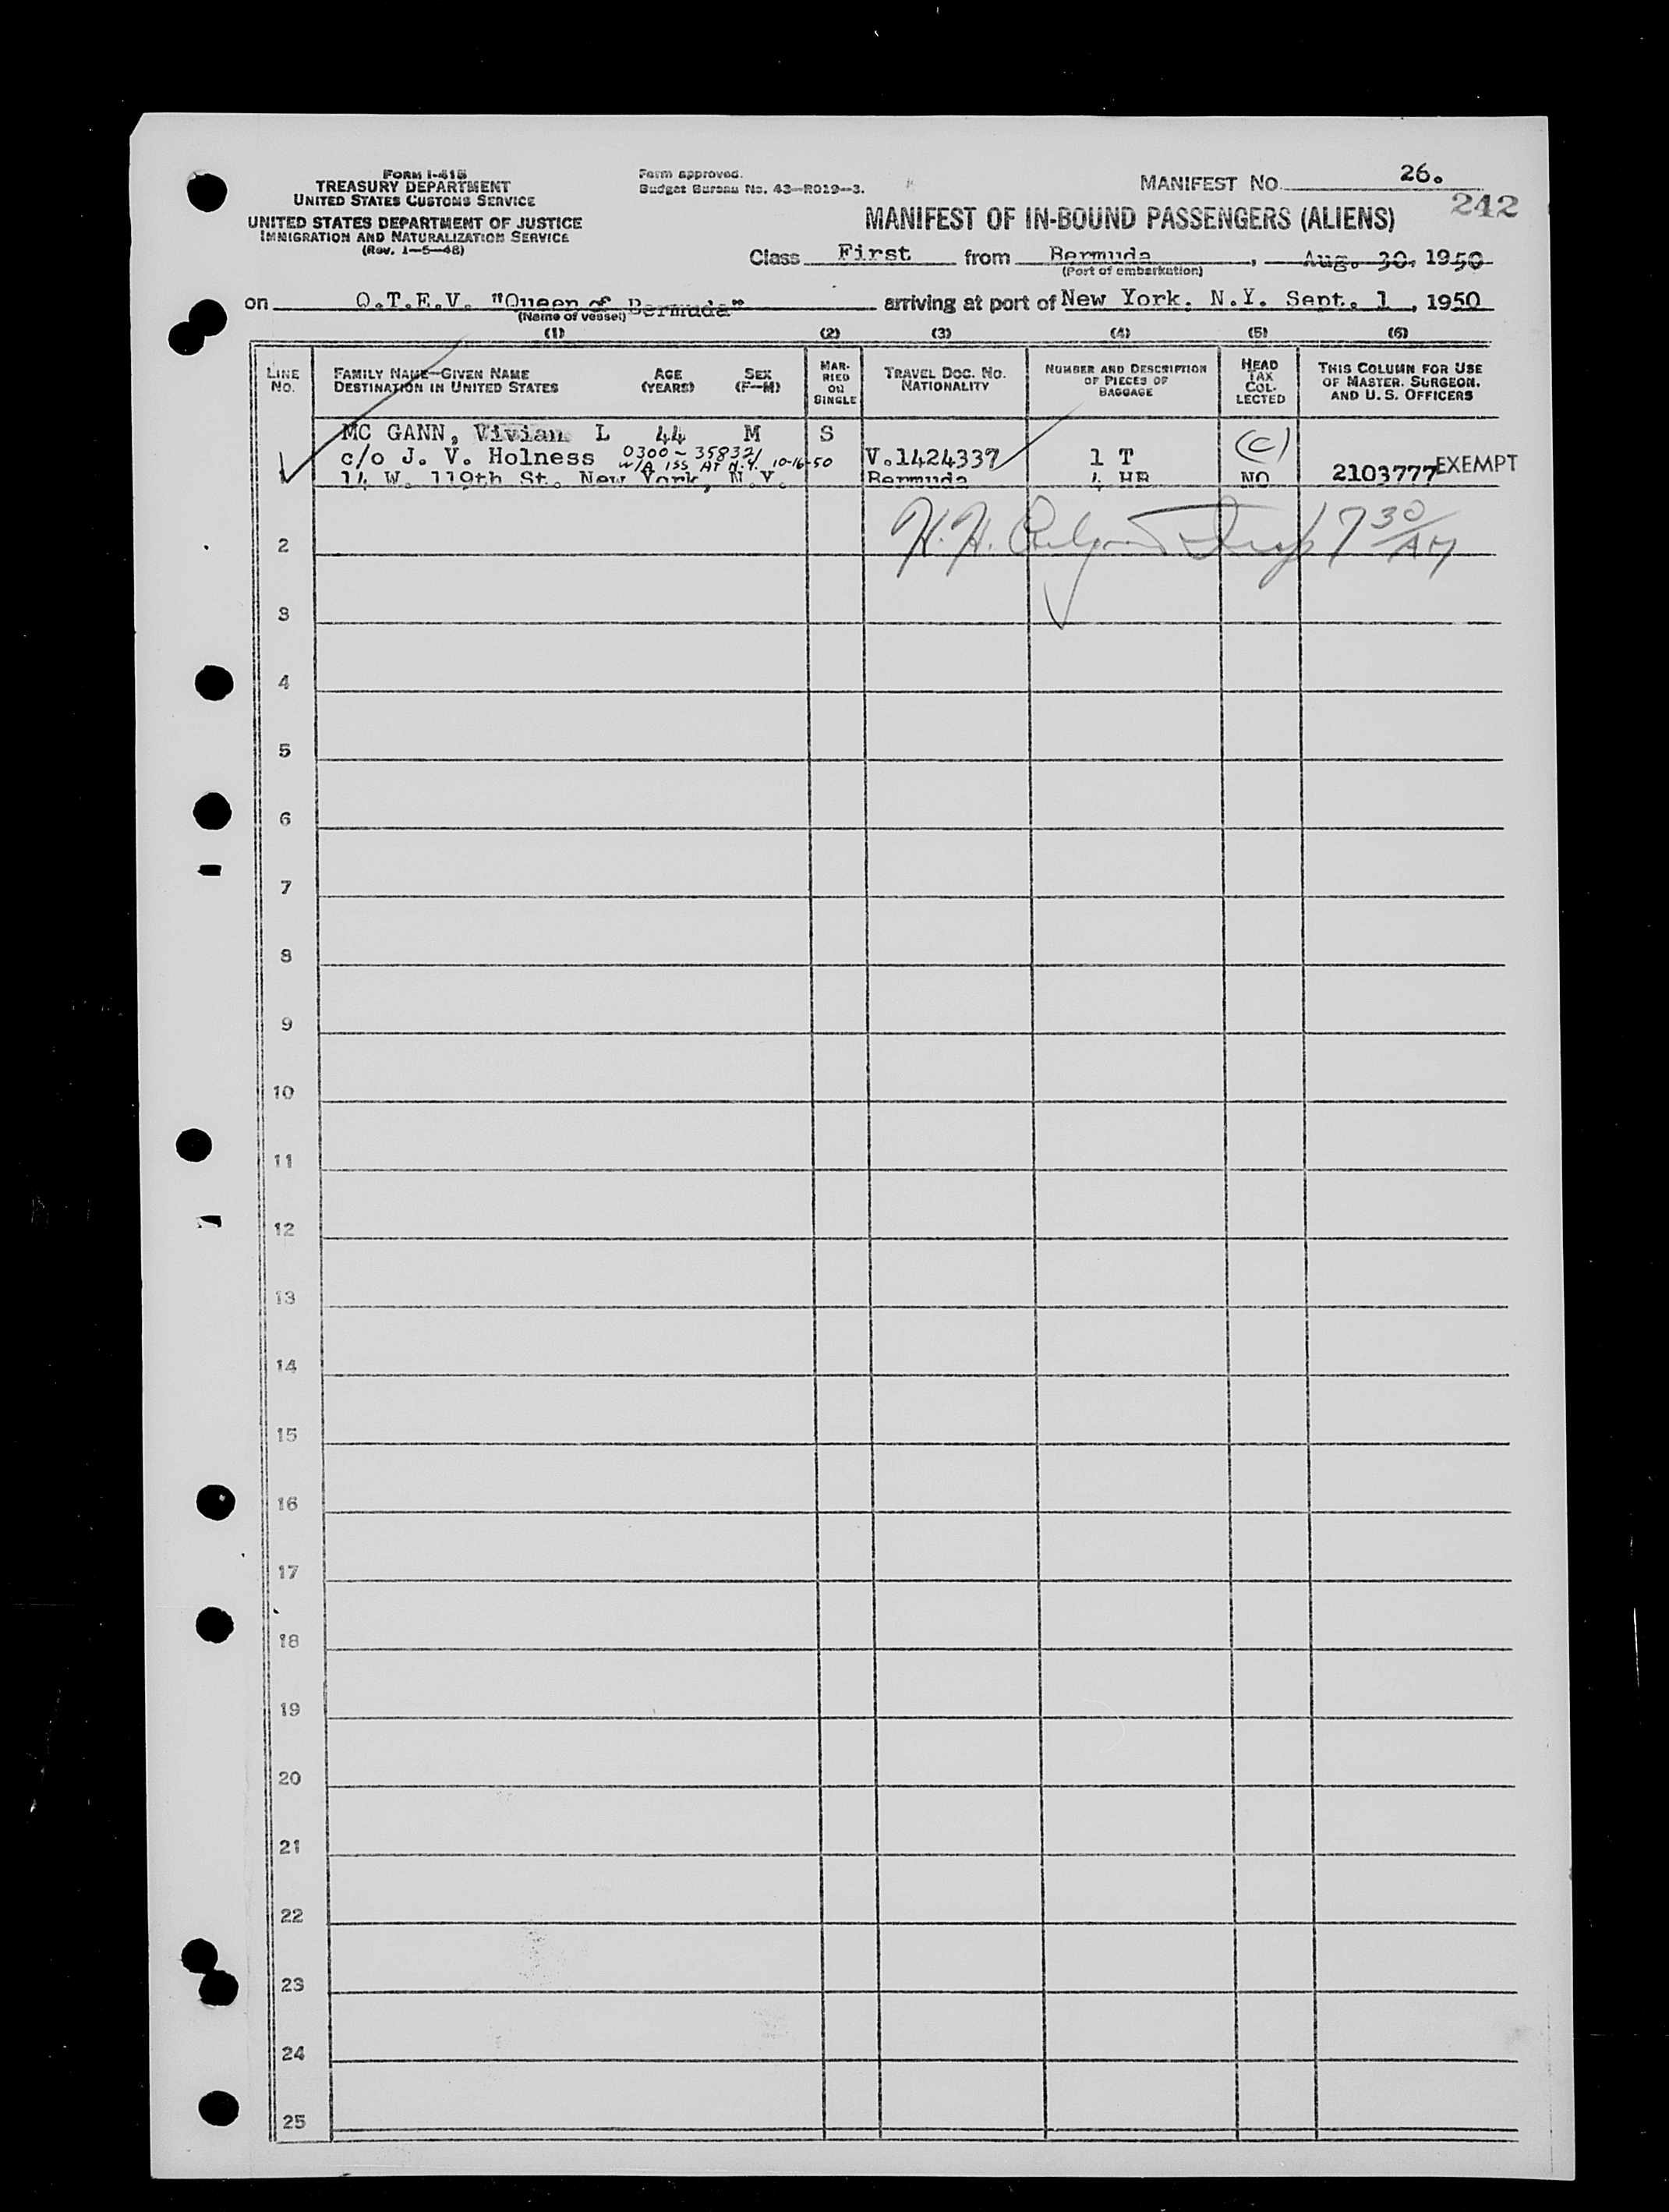 FORM I-415
TREASURY DEPARTMENT
UNITED STATES CUSTOMS SERVICE
UNITED STATES DEPARTMENT OF JUSTICE
IMMIGRATION AND NATURALIZATION SERVICE
(Rev. 1-5-48)
Form approved.
Budget Bureau No. 43-R019-3.
MANIFEST NO. 26.
242
MANIFEST OF IN-BOUND PASSENGERS (ALIENS)
Class First from Bermuda, Aug. 30, 1950
(Port of embarkation)
on Q.T.E.V. "Queen of Bermuda" arriving at port of New York, N.Y. Sept. 1, 1950
(Name of vessel)
(1) (2) (3) (4) (5) (6)
LINE NO.
FAMILY NAME—GIVEN NAME
DESTINATION IN UNITED STATES
AGE (YEARS)
SEX (F—M)
MARRIED OR SINGLE
TRAVEL DOC. NO.
NATIONALITY
NUMBER AND DESCRIPTION OF PIECES OF BAGGAGE
HEAD TAX COLLECTED
THIS COLUMN FOR USE OF MASTER, SURGEON, AND U. S. OFFICERS
MC GANN, Vivian L 44 M S (C)
c/o J. V. Holness 0300-358321 V.1424337 1 T
w/A ISS AT N.Y. 10-16-50
1 14 W. 119th St. New York, N.Y. Bermuda 4 HB NO 2103777 EXEMPT
H.H. Insp 7 30/AM
2
3
4
5
6
7
8
9
10
11
12
13
14
15
16
17
18
19
20
21
22
23
24
25